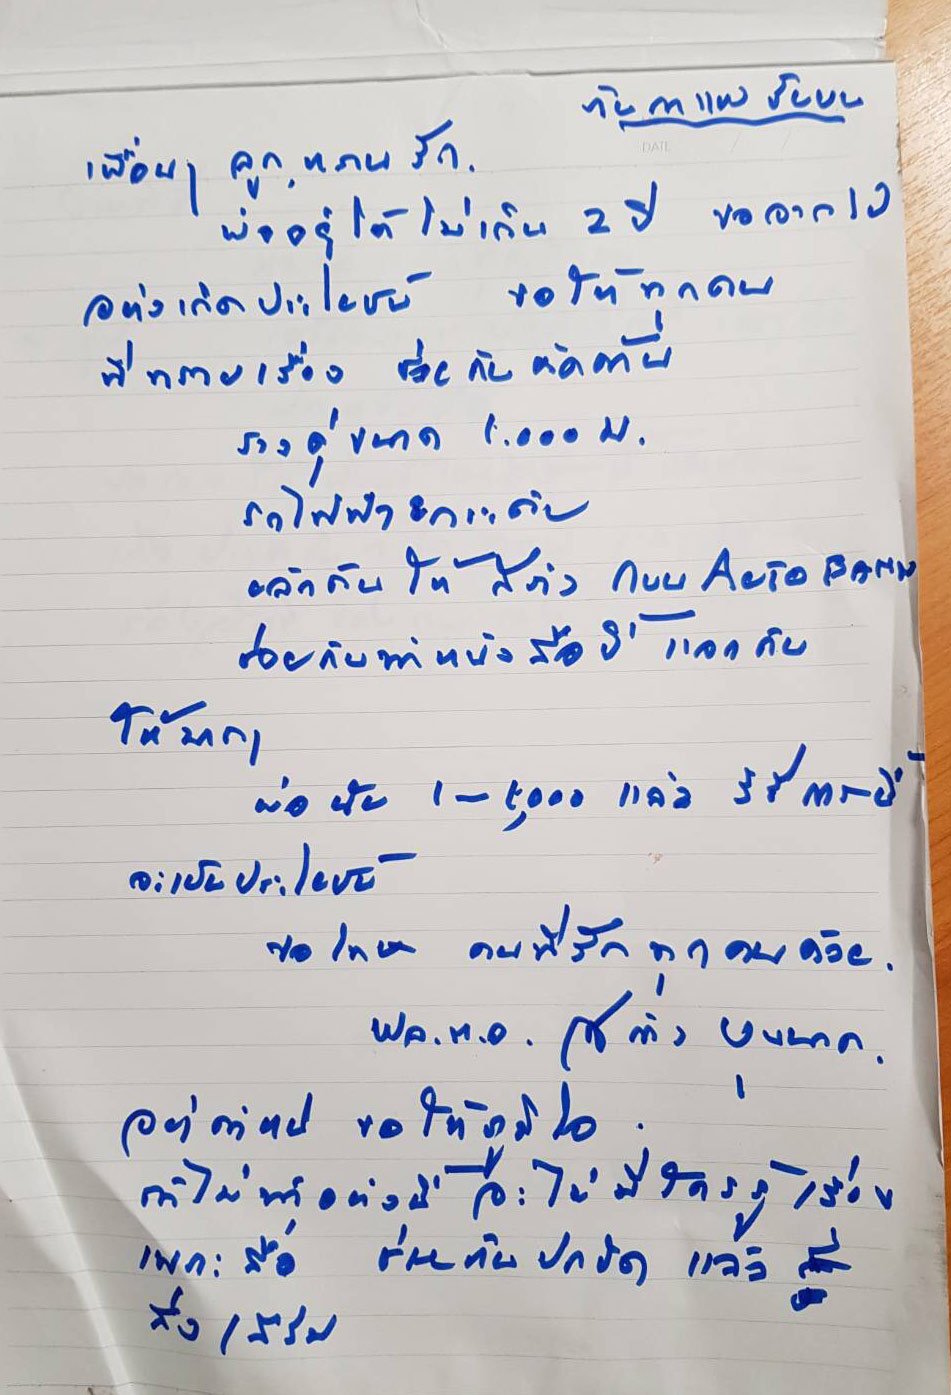 เพื่อนๆ ลูก,หลานรัก.
พ่ออยู่ได้ไม่เกิน 2 ปี ขอจากไป
อย่างเกิดประโยชน์ ขอให้ทุกคน
ที่ทราบเรื่อง ช่วยกันคัดค้าน
รางคู่ขนาด 1.000 ม.
รถไฟฟ้ายกระดับ
ผลักดันให้สร้าง ถนน AUTOBAHN
ช่วยกันทำหนังสือนี้ แจกกัน
ให้มากๆ
พ่อพิมพ์ 1-5,000 แล้ว
จะเป็นประโยชน์
ขอโทษ คนที่รักทุกคนด้วย.
พล.ท.อ. สำรวจ บุนนาค.
อย่าตำหนิ ขอให้ภูมิใจ.
ถ้าไม่ทำอย่างนี้ จะไม่มีใครรู้เรื่อง
เพราะสื่อ ช่วยกันปกปิด แล้ว
ส่งเสริม